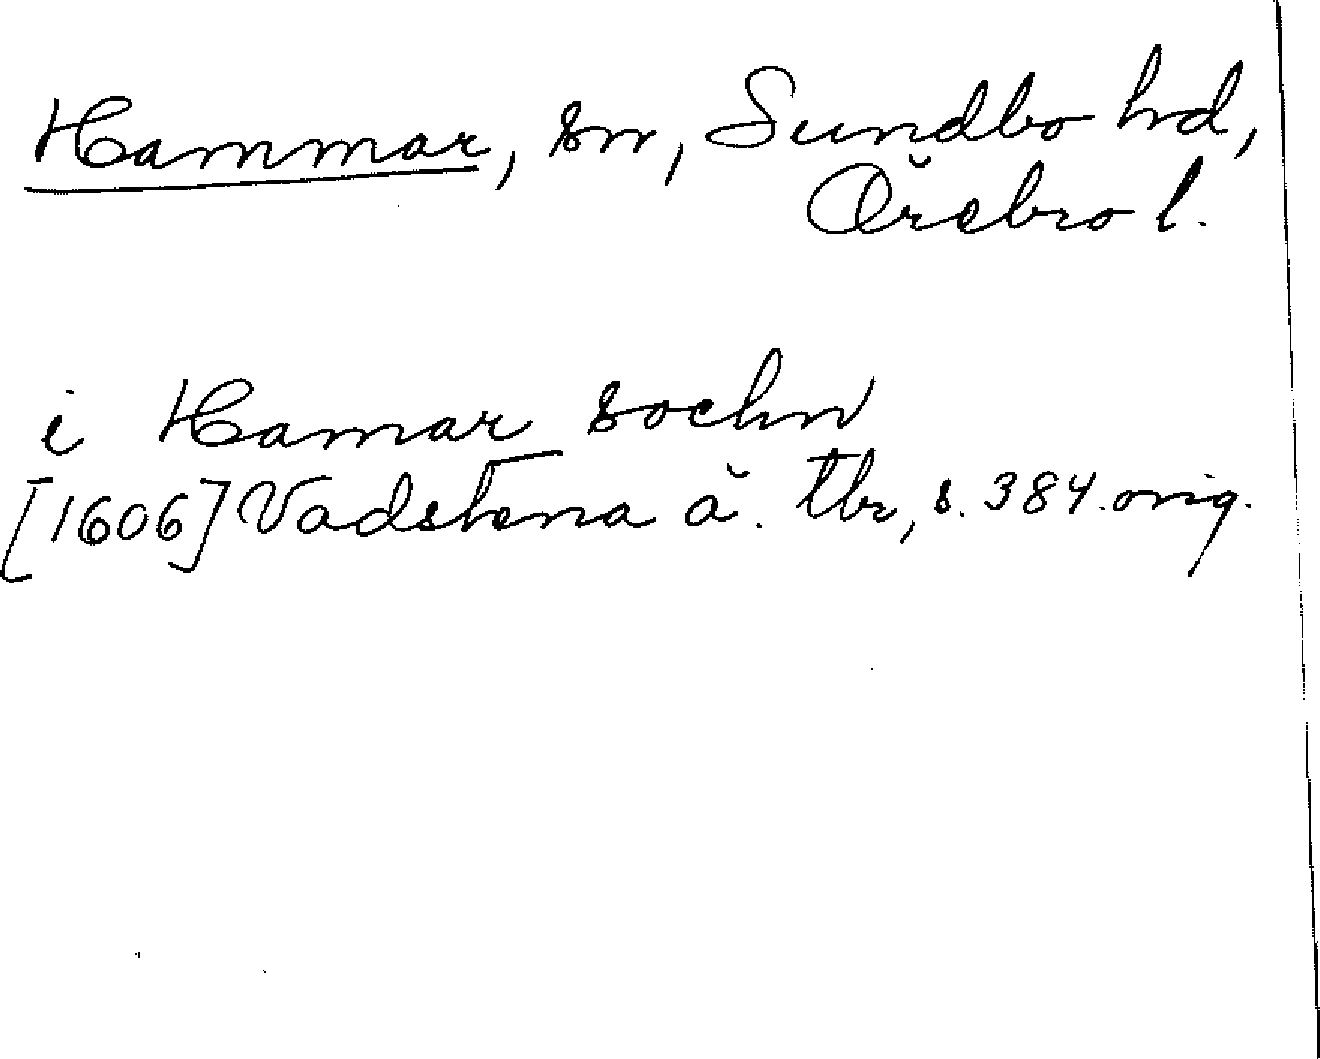 Hammar, sn, Sundbo hd,
Örebro l.
i Hamar sochn
[1606] Vadstena ä. tbr, s. 384. orig.